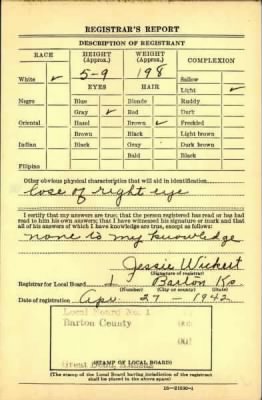 REGISTRAR'S REPORT
DESCRIPTION OF REGISTRANT
RACE HEIGHT (Approx.) WEIGHT (Approx.) COMPLEXION
5-9 198
White ✓ Sallow
EYES HAIR Light ✓
Negro Blue Blonde Ruddy
Gray ✓ Red Dark
Oriental Hazel Brown ✓ Freckled
Brown Black Light brown
Indian Black Gray Dark brown
Bald Black
Filipino
Other obvious physical characteristics that will aid in identification
lose of right eye
I certify that my answers are true; that the person registered has read or has had
read to him his own answers; that I have witnessed his signature or mark and that
all of his answers of which I have knowledge are true, except as follows:
none to my knowledge
Jessie Wickert
(Signature of registrar)
Registrar for Local Board 1 Barton Ks.
(Number) (City or county) (State)
Date of registration Apr 27 - 1942
Local Board No. 1
Barton County
Great Bend, Kansas
(STAMP OF LOCAL BOARD)
(The stamp of the Local Board having jurisdiction of the registrant
shall be placed in the above space)